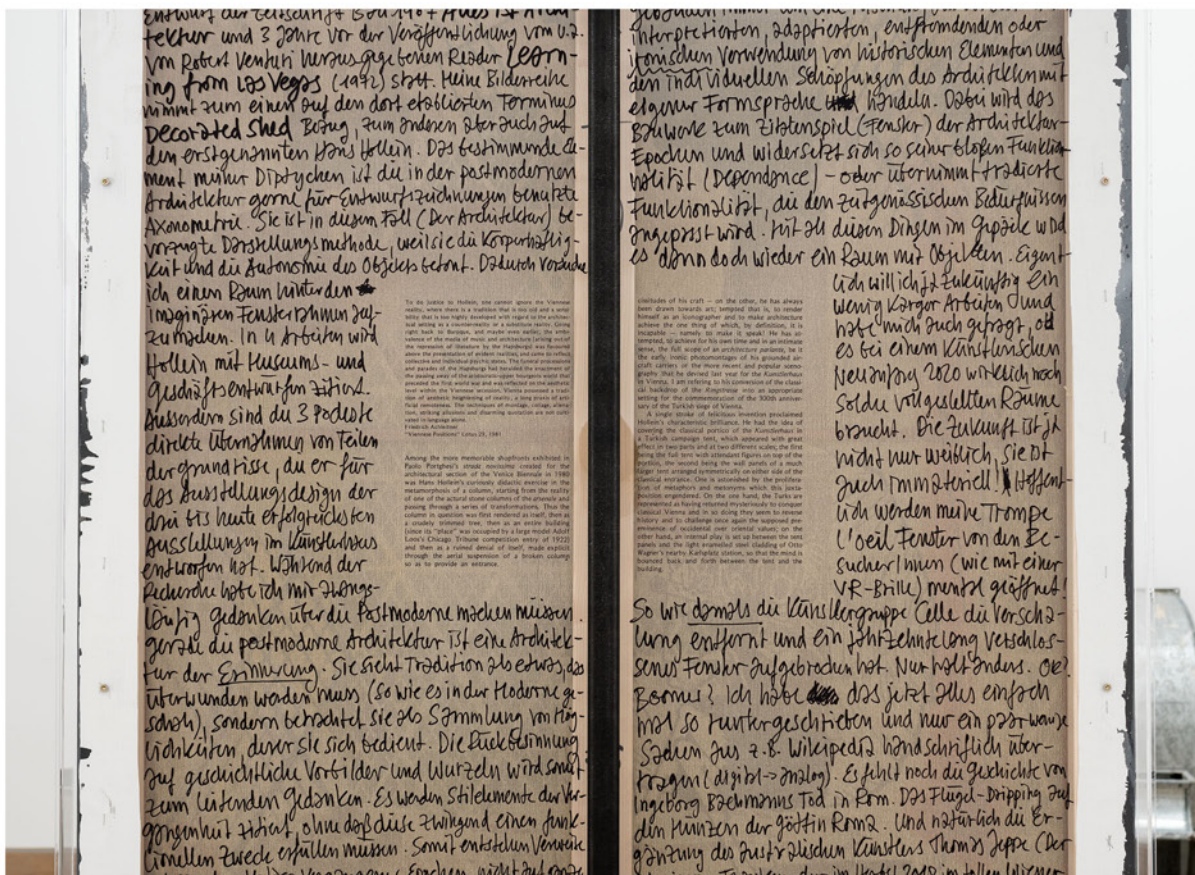 Entwurf der Zeitschrift Bau 1968 Alles ist Archi-
tektur und 3 Jahre vor der Veröffentlichung vom u.a.
von Robert Venturi herausgegebenen Reader Learn-
ing from Las Vegas (1972) statt. Meine Bilderreihe
nimmt zum einen auf den dort etablierten Terminus
Decorated Shed Bezug, zum anderen aber auch auf
den erstgenannten Hans Hollein. Das bestimmende Ele-
ment meiner Diptychen ist die in der postmodernen
Architektur gerne für Entwurfszeichnungen benutzte
Axonometrie. Sie ist in diesem Fall (Der Architektur) be-
vorzugte Darstellungsmethode, weil sie die Körperhaftig-
keit und die Autonomie des Objekts betont. Dadurch versuche
ich einen Raum hinter den
imaginären Fensterrahmen auf-
zumachen. In 4 Arbeiten wird
Hollein mit Museums- und
Geschäftsentwürfen zitiert.
Ausserdem sind die 3 Podeste
direkte Übernahmen von Teilen
der Grundrisse, die er für
das Ausstellungsdesign der
drei bis heute erfolgreichsten
Ausstellungen im Künstlerhaus
entworfen hat. Während der
Recherche habe ich mir zwangs-
läufig Gedanken über die Postmoderne machen müssen.
gerade die postmoderne Architektur ist eine Architek-
tur der Erinnerung. Sie sieht Tradition als etwas, das
überwunden werden muss (so wie es in der Moderne ge-
schah), sondern betrachtet sie als Sammlung von Mög-
lichkeiten, derer sie sich bedient. Die Rückbesinnung
auf geschichtliche Vorbilder und Wurzeln wird somit
zum leitenden Gedanken. Es werden Stilelemente der Ver-
gangenheit zitiert, ohne daß diese zwingend einen funk-
tionellen Zweck erfüllen müssen. Somit entstehen Verweise
To do justice to Hollein, one cannot ignore the Viennese
reality, where there is a tradition that is too old and a sensi-
bility that is too highly developed with regard to the architec-
tural setting as a counterreality or a substitute reality. Going
right back to Baroque, and maybe even earlier, the ambi-
valence of the music and architecture (arising out of
the repression of literature by the Habsburgs) was favoured
above the presentation of evident realities, and came to reflect
collective and individual psychic states. The funeral processions
and parades of the Habsburgs had heralded the enactment of
the passing away of the aristocratic-upper bourgeois world that
preceded the first world war and was reflected on the aesthetic
level within the Viennese secession. Vienna possessed a tradi-
tion of aesthetic heightening of reality, a long praxis of arti-
ficial remoteness. The techniques of montage, collage, aliena-
tion, striking allusions and disarming quotation are not culti-
vated in language alone.
Friedrich Achleitner
"Viennese Positions" Lotus 29, 1981
Among the more memorable shopfronts exhibited in
Paolo Portghesi's strada novissima created for the
architectural section of the Venice Biennale in 1980
was Hans Hollein's curiously didactic exercise in the
metamorphosis of a column, starting from the reality
of one of the actual stone columns of the arsenale and
passing through a series of transformations. Thus the
column in question was first rendered as itself, then as
a crudely trimmed tree, then as an entire building
(since its "place" was occupied by a large model Adolf
Loos's Chicago Tribune competition entry of 1922)
and then as a ruined denial of itself, made explicit
through the aerial suspension of a broken column
so as to provide an entrance.
interpretierten, adaptierten, entfremdenden oder
ironischen Verwendung von historischen Elementen und
den individuellen Schöpfungen des Architekten mit
eigener Formsprache handeln. Dabei wird das
Bauwerk zum Zitatenspiel (Fenster) der Architektur-
Epochen und widersetzt sich so seiner bloßen Funktio-
nalität (Dependance) – oder übernimmt tradierte
Funktionalität, die den zeitgenössischen Bedürfnissen
angepasst wird. Mit all diesen Dingen im Gepäck wird
es dann doch wieder ein Raum mit Objekten. Eigent-
lich will ich ja zukünftig ein
wenig karger Arbeiten und
habe mich auch gefragt, ob
es bei einem Künstlerischen
Neuanfang 2020 wirklich noch
solche vollgestellten Räume
braucht. Die Zukunft ist ja
nicht nur weiblich, sie ist
auch immateriell! Hoffent-
lich werden meine Trompe
L'oeil Fenster von den Be-
sucher/innen (wie mit einer
VR-Brille) mental geöffnet!
So wie damals die Künstlergruppe Celle die Verscha-
lung entfernt und ein jahrzehntelang verschlos-
senes Fenster aufgebrochen hat. Nur halt anders. Ok?
Boomer? Ich habe das jetzt alles einfach
mal so runtergeschrieben und nur ein paar wenige
Sachen aus z.B. Wikipedia handschriftlich über-
tragen (digital->analog). Es fehlt noch die Geschichte von
Ingeborg Bachmanns Tod in Rom. Das Flügel-Dripping auf
den Münzen der Göttin Roma. Und natürlich die Er-
gänzung des australischen Künstlers Thomas Jeppe (Der
cissitudes of his craft — on the other, he has always
been drawn towards art; tempted that is, to render
himself as an iconographer and to make architecture
achieve the one thing of which, by definition, it is
incapable — namely to make it speak! He has at-
tempted, to achieve for his own time and in an intimate
sense, the full scope of an architecture parlante, be it
the early ironic photomontages of his grounded air-
craft carriers or the more recent and popular sceno-
graphy that he devised last year for the Kunstlerhaus
in Vienna. I am referring to his conversion of the classi-
cal backdrop of the Ringstrasse into an appropriate
setting for the commemoration of the 300th anniver-
sary of the Turkish siege of Vienna.
A single stroke of felicitous invention proclaimed
Hollein's characteristic brilliance. He had the idea of
covering the classical portico of the Kunstlerhaus in
a Turkish campaign tent, which appeared with great
effect in two parts and at two different scales; the first
being the full tent with attendant figures on top of the
portico, the second being the wall panels of a much
larger tent arranged symmetrically on either side of the
classical entrance. One is astonished by the prolifera-
tion of metaphors and metonyms which this juxta-
position engendered. On the one hand, the Turks are
represented as having returned mysteriously to conquer
classical Vienna and in so doing they seem to reverse
history and to challenge once again the supposed pre-
eminence of occidental over oriental values; on the
other hand, an internal play is set up between the tent
panels and the light enamelled steel cladding of Otto
Wagner's nearby Karlsplatz station, so that the mind is
bounced back and forth between the tent and the
building.